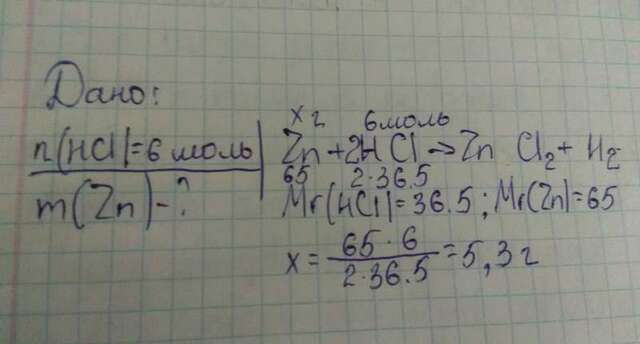 Дано:
n(HCl)=6 моль
m(Zn)-?
x г 6 моль
Zn+2HCl→Zn Cl₂+ H₂
65 2·36.5
Mr(HCl)=36.5; Mr(Zn)=65
x = 65·6 / 2·36.5 = 5,3 г